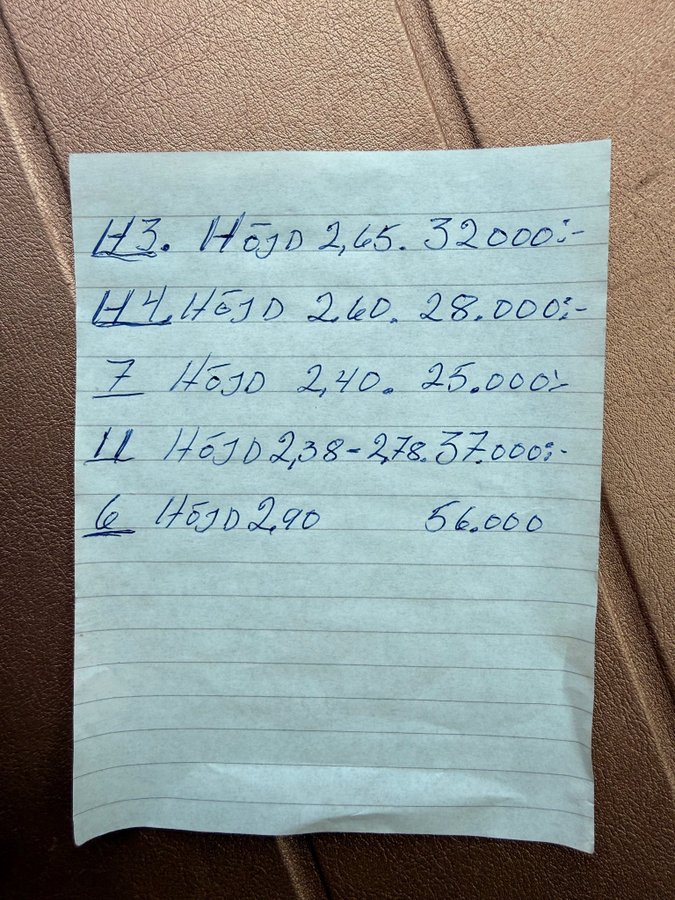 H3. HÖJD 2,65. 32000:-
H4. HÖJD 2.60. 28.000:-
7 HÖJD 2,40. 25.000:-
11 HÖJD 2,38-2,78. 37.000:-
6 HÖJD 2,90 56.000